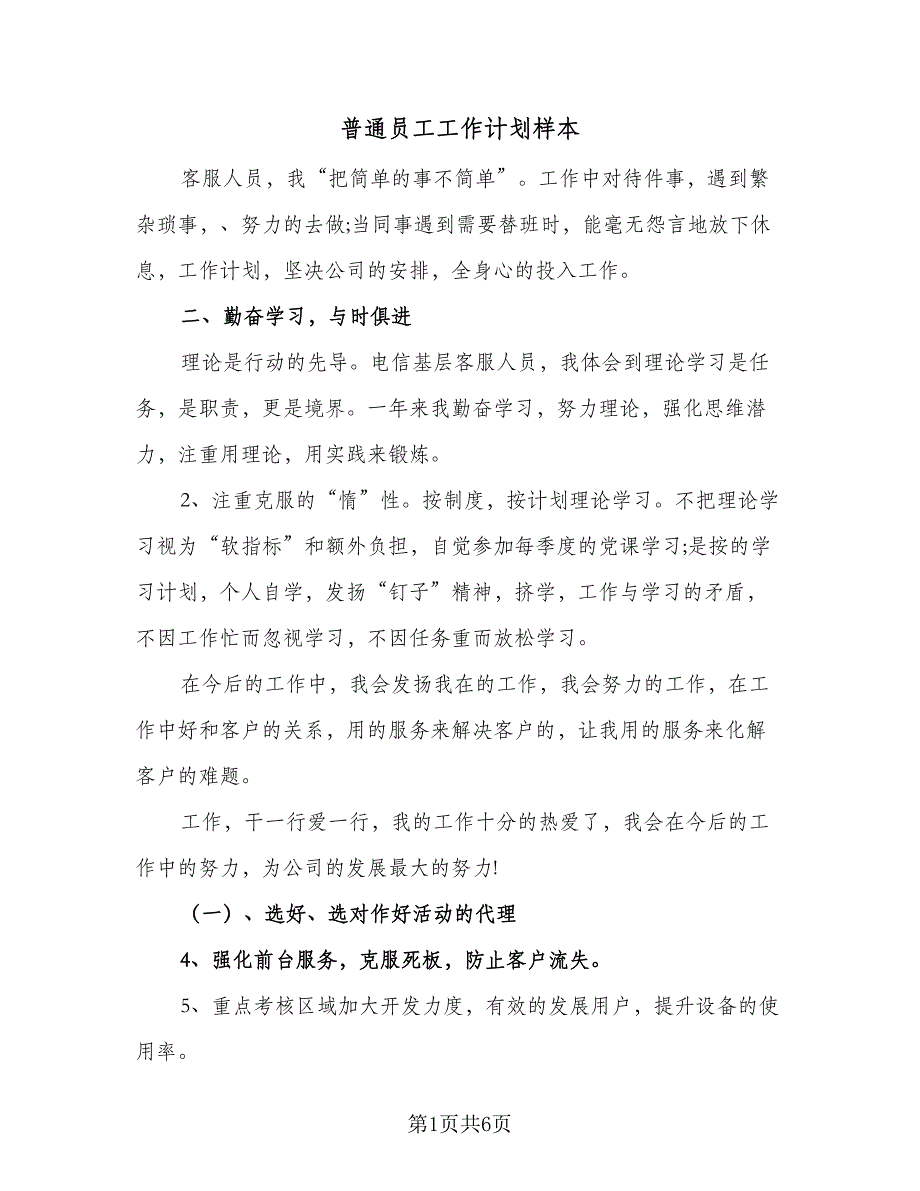 普通员工工作计划样本
客服人员，我“把简单的事不简单”。工作中对待件事，遇到繁
杂琐事，、努力的去做;当同事遇到需要替班时，能毫无怨言地放下休
息，工作计划，坚决公司的安排，全身心的投入工作。
二、勤奋学习，与时俱进
理论是行动的先导。电信基层客服人员，我体会到理论学习是任
务，是职责，更是境界。一年来我勤奋学习，努力理论，强化思维潜
力，注重用理论，用实践来锻炼。
2、注重克服的“惰”性。按制度，按计划理论学习。不把理论学
习视为“软指标”和额外负担，自觉参加每季度的党课学习;是按的学
习计划，个人自学，发扬“钉子”精神，挤学，工作与学习的矛盾，
不因工作忙而忽视学习，不因任务重而放松学习。
在今后的工作中，我会发扬我在的工作，我会努力的工作，在工
作中好和客户的关系，用的服务来解决客户的，让我用的服务来化解
客户的难题。
工作，干一行爱一行，我的工作十分的热爱了，我会在今后的工
作中的努力，为公司的发展最大的努力!
（一）、选好、选对作好活动的代理
4、强化前台服务，克服死板，防止客户流失。
5、重点考核区域加大开发力度，有效的发展用户，提升设备的使
用率。
第1页共6页